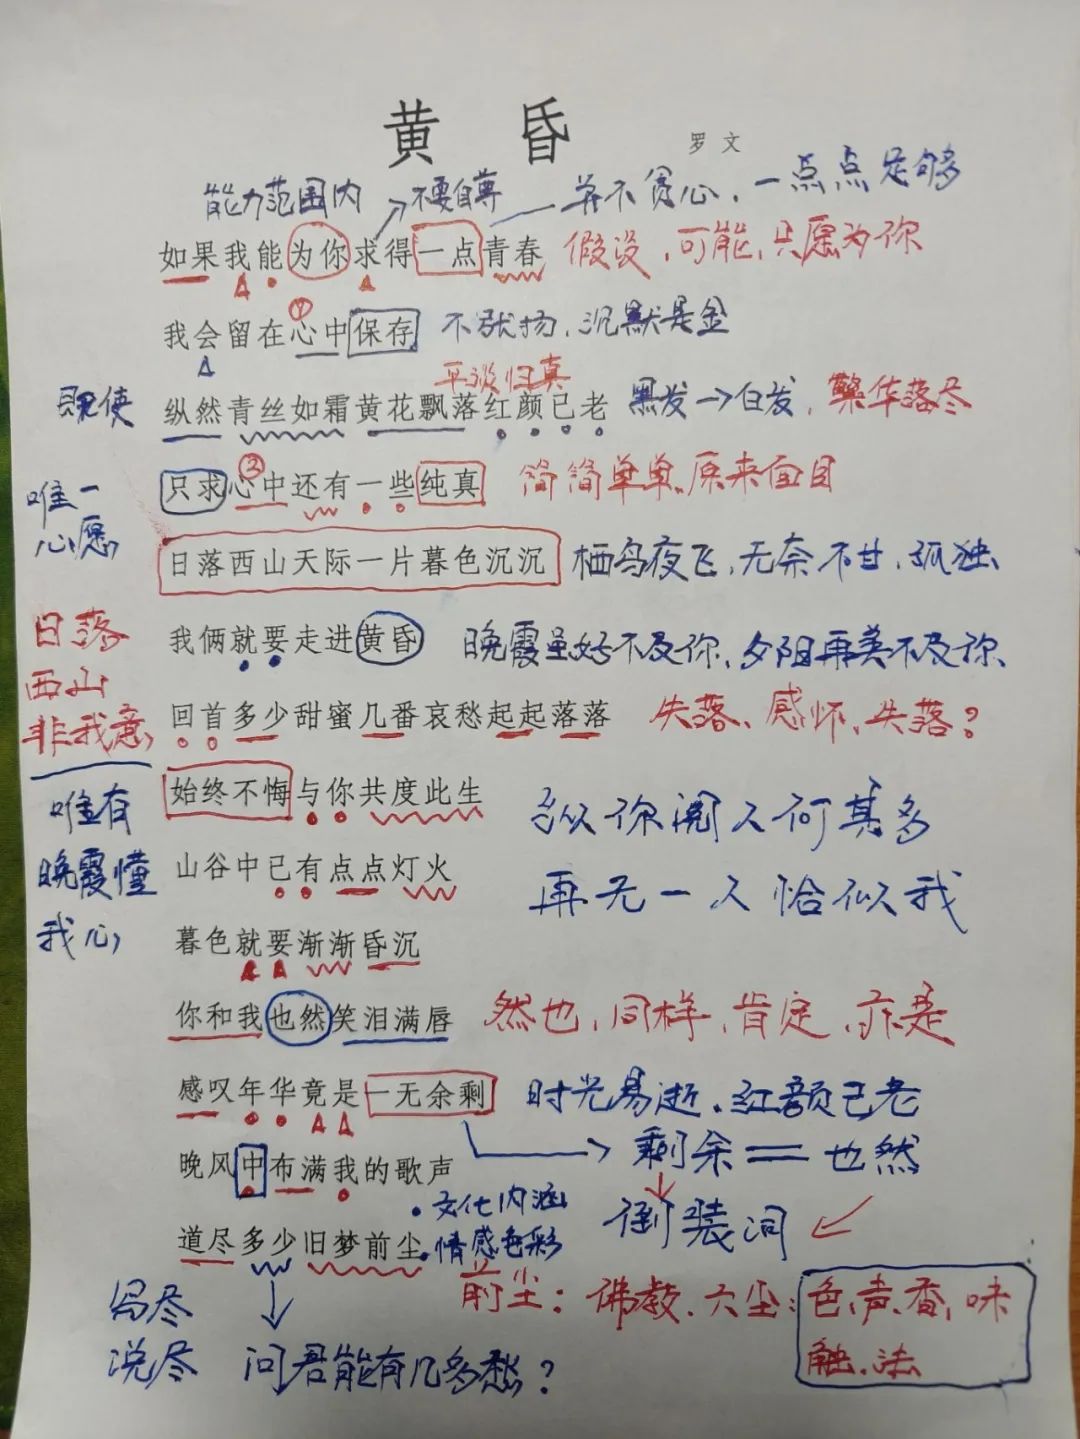 黄 昏
罗 文
能力范围内 不要自尊 并不贪心,一点点足够
如果我能为你求得一点青春 假设,可能,只愿为你
①
我会留在心中保存 不张扬,沉默是金
平淡归真
既使 纵然青丝如霜黄花飘落红颜已老 黑发→白发,繁华落尽
②
唯一心愿 只求心中还有一些纯真 简简单单、原来面目
日落西山天际一片暮色沉沉 栖鸟夜飞,无奈不甘,孤独
日落 我俩就要走进黄昏 晚霞虽好不及你、夕阳再美不及你
西山
非我意 回首多少甜蜜几番哀愁起起落落 失落、感怀,失落?
唯有 始终不悔与你共度此生 纵你阅人何其多
晚霞懂 山谷中已有点点灯火 再无一人恰似我
我心 暮色就要渐渐昏沉
你和我也然笑泪满唇 然也,同样,肯定,亦是
感叹年华竟是一无余剩 时光易逝.红颜已老
→ 剩余=也然
晚风中布满我的歌声
·文化内涵 倒装词
道尽多少旧梦前尘 ·情感色彩
前尘:佛教.六尘:色,声.香,味
触.法
说尽 问君能有几多愁?